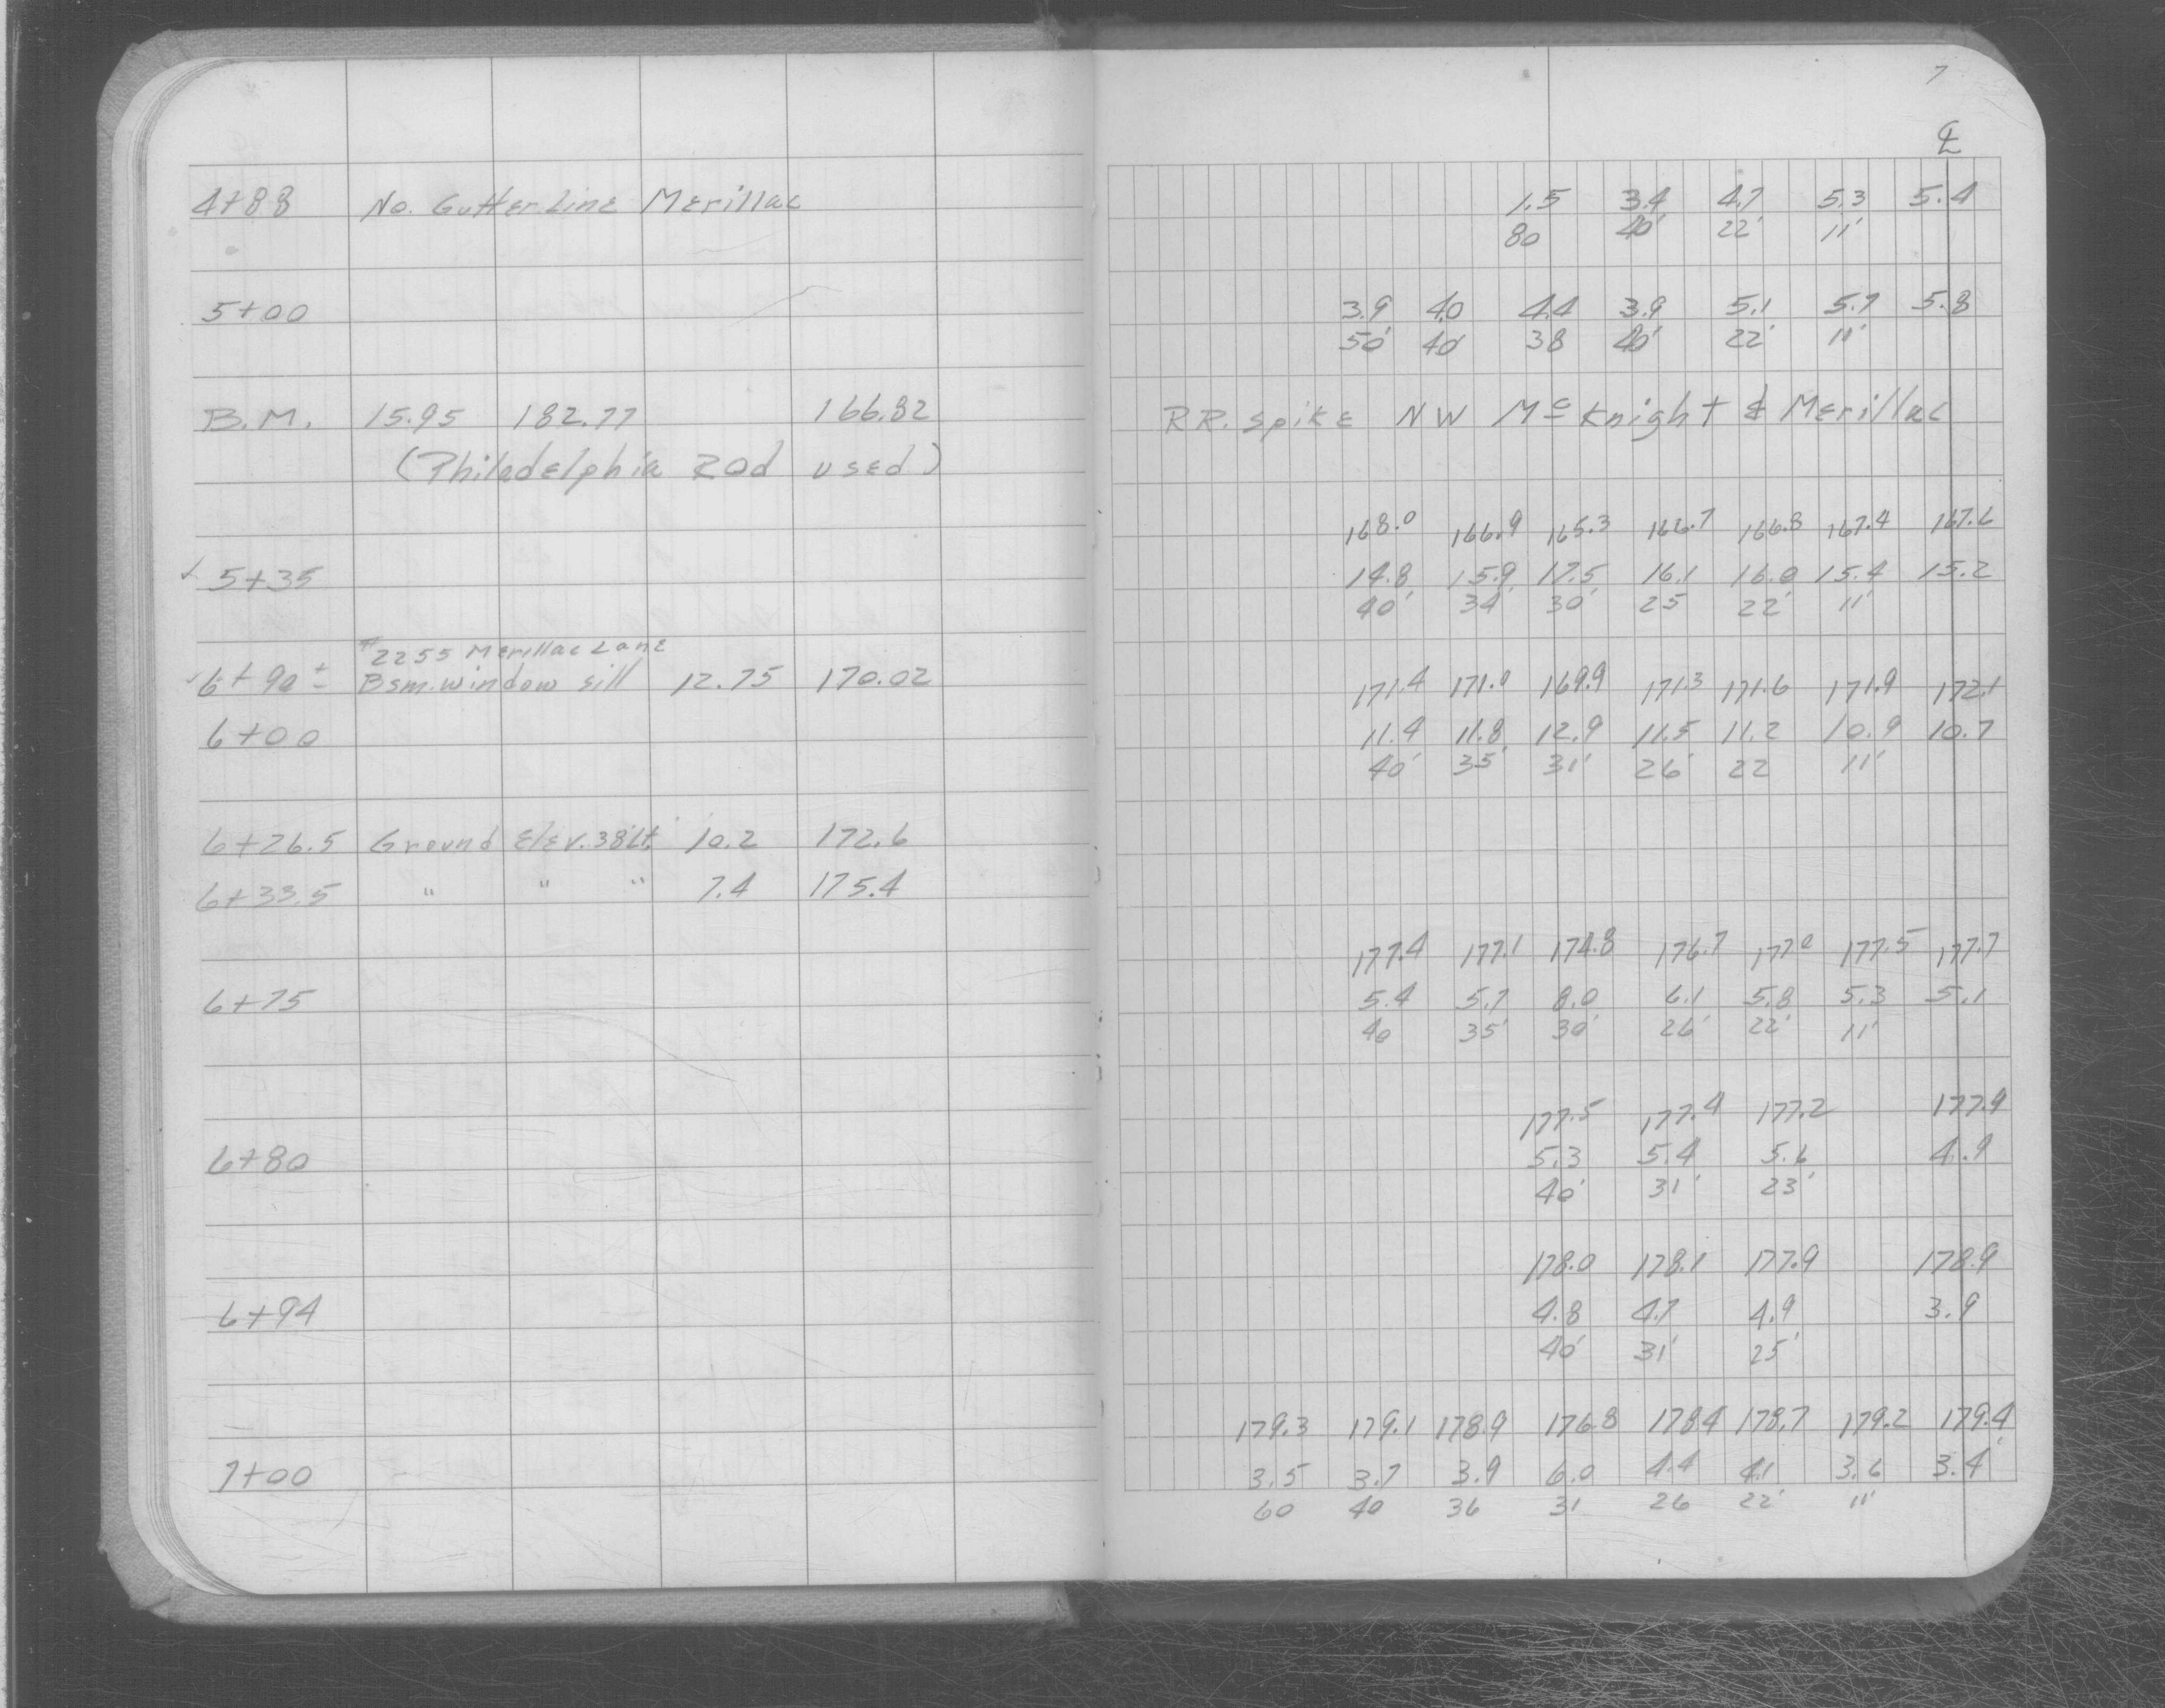 7
℄
4+88 No. Gutter Line Merillac 1.5 3.4 4.7 5.3 5.4
80 40' 22' 11'
5+00 3.9 4.0 4.4 3.9 5.1 5.7 5.8
50' 40' 38 40' 22' 11'
B.M. 15.95 182.77 166.82 RR. Spike NW Mc Knight & Merillac
(Philadelphia Rod used)
168.0 166.9 165.3 166.7 166.8 167.4 167.6
✓ 5+35 14.8 15.9 17.5 16.1 16.0 15.4 15.2
40' 34' 30' 25 22' 11'
#2255 Merillac Lane
✓ 6+90± Bsm. window sill 12.75 170.02 171.4 171.0 169.9 171.3 171.6 171.9 172.1
6+00 11.4 11.8 12.9 11.5 11.2 10.9 10.7
40' 35' 31' 26' 22 11'
6+26.5 Ground Elev. 38'Lt. 10.2 172.6
6+33.5 " " " 7.4 175.4
177.4 177.1 174.8 176.7 177.0 177.5 177.7
6+75 5.4 5.7 8.0 6.1 5.8 5.3 5.1
40 35' 30' 26' 22' 11'
177.5 177.4 177.2 177.9
6+80 5.3 5.4 5.6 4.9
40' 31' 23'
178.0 178.1 177.9 178.9
6+94 4.8 4.7 4.9 3.9
40' 31' 25'
179.3 179.1 178.9 176.8 178.4 178.7 179.2 179.4
7+00 3.5 3.7 3.9 6.0 4.4 4.1 3.6 3.4
60 40 36 31 26 22' 11'